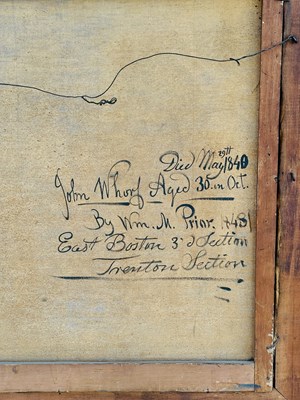 Died May 29th 1840
John Whorf Aged 35 in Oct.
By Wm. M. Prior, 1848
East Boston 3d Section
Trenton Section